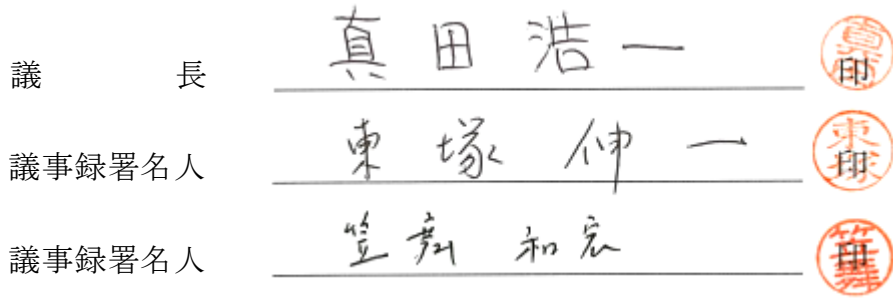 議長 真田浩一 印
議事録署名人 東塚伸一 印
議事録署名人 笠舞和宏 印